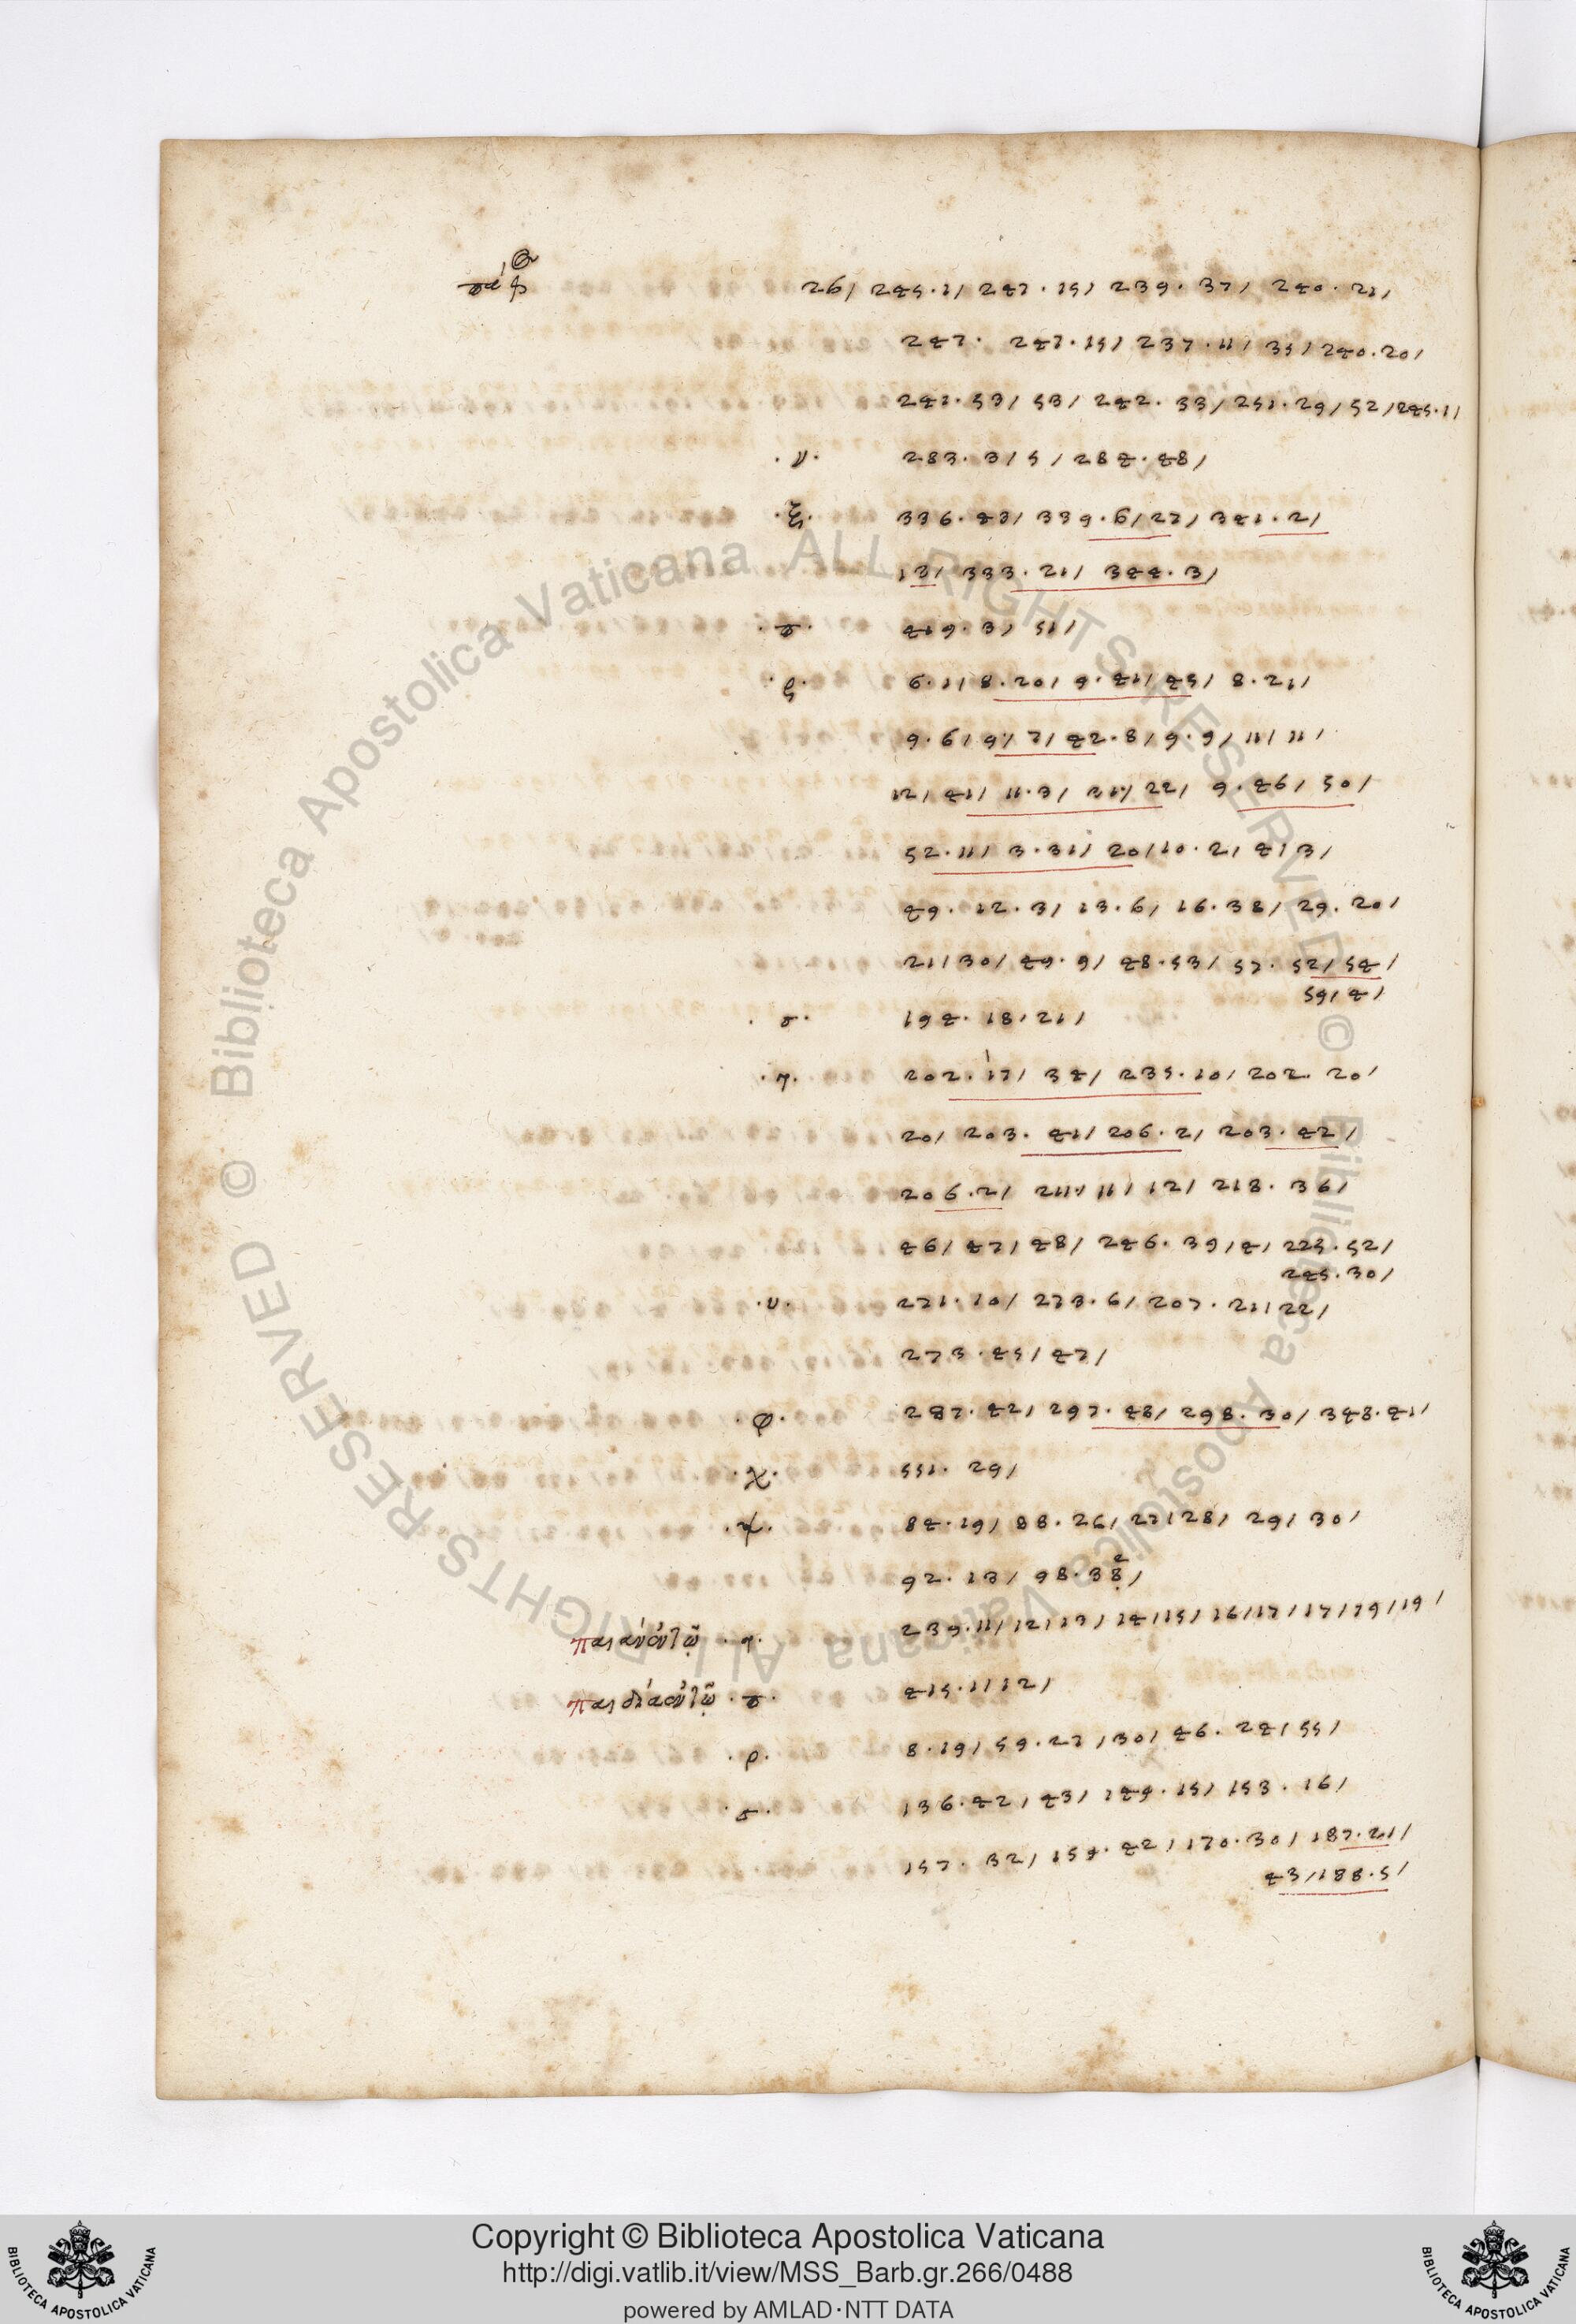 26/ 245.1/ 247.15/ 239.37/ 240.21/
247. 247.15/ 237.11/ 35/ 240.20/
241.53/ 53/ 242.33/ 251.29/ 52/ 245.1/
.ν. 283.3/5/ 284.48/
.ξ. 336.43/ 339.6/27/ 341.2/
13/ 333.21/ 344.3/
.π. 419.3/ 51/
.ρ. 6.1/ 8.20/ 9.41/ 45/ 8.21/
9.6/ 9/ 7/ 42.8/ 9.9/ 11/ 11/
12/ 41/ 11.3/ 21/ 22/ 9.46/ 50/
52.11/ 3.31/ 20/ 10.2/ 4/3/
49.12.3/ 13.6/ 16.38/ 29.20/
21/30/ 49.9/ 48.53/ 57.52/ 54/
59/ 4/
.σ. 194.18/21/
.τ. 202.17/ 34/ 235.10/ 202.20/
20/ 203.41/ 206.2/ 203.42/
206.2/ 211.11/ 12/ 218.36/
46/ 47/ 48/ 246.39/4/ 225.52/
245.30/
.υ. 271.10/ 273.6/ 207.21/22/
273.45/ 47/
.φ. 287.42/ 297.48/ 298.30/ 348.41/
.χ. 551.29/
.ψ. 84.19/ 88.26/ 27/28/ 29/ 30/
92.13/ 98.38/
.τ. 239.11/12/13/ 14/15/ 16/17/17/19/19/
.π. 415.11/12/
.ρ. 8.19/ 59.27/30/ 46.24/55/
.σ. 136.42/ 43/ 149.15/ 153.16/
157.32/ 154.42/ 170.30/ 187.21/
43/188.5/
Copyright © Biblioteca Apostolica Vaticana
http://digi.vatlib.it/view/MSS_Barb.gr.266/0488
powered by AMLAD·NTT DATA
BIBLIOTECA APOSTOLICA VATICANA
BIBLIOTECA APOSTOLICA VATICANA
© Biblioteca Apostolica Vaticana ALL RIGHTS RESERVED
© Biblioteca Apostolica Vaticana ALL RIGHTS RESERVED